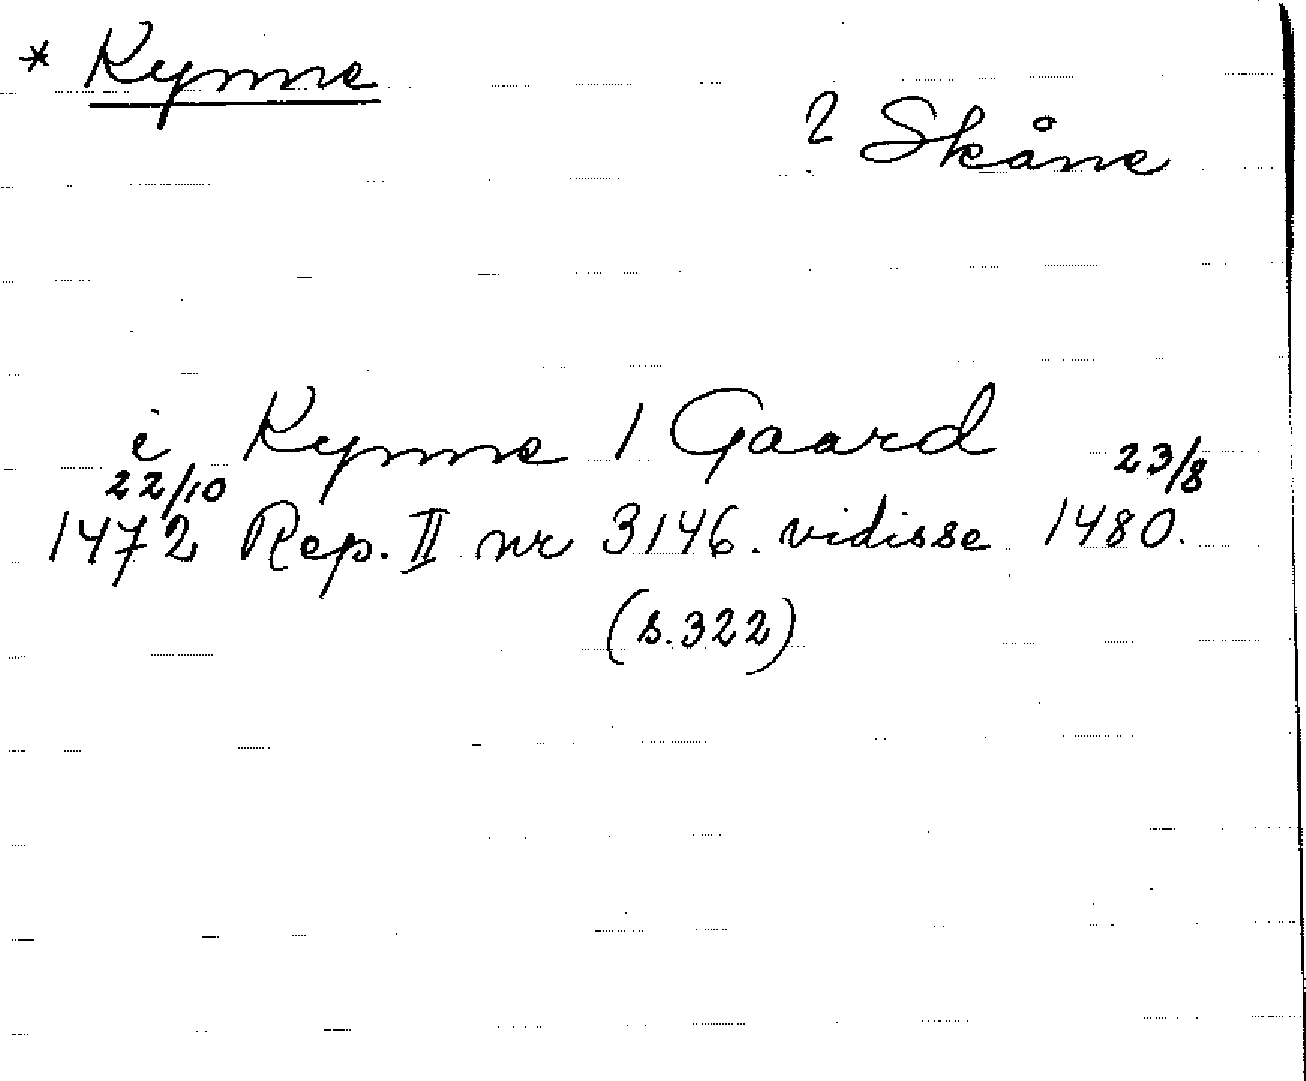 * Kymme
? Skåne
i Kymme 1 Gaard
22/10 23/8
1472 Rep. II nr 3146. vidisse 1480.
(s. 322)